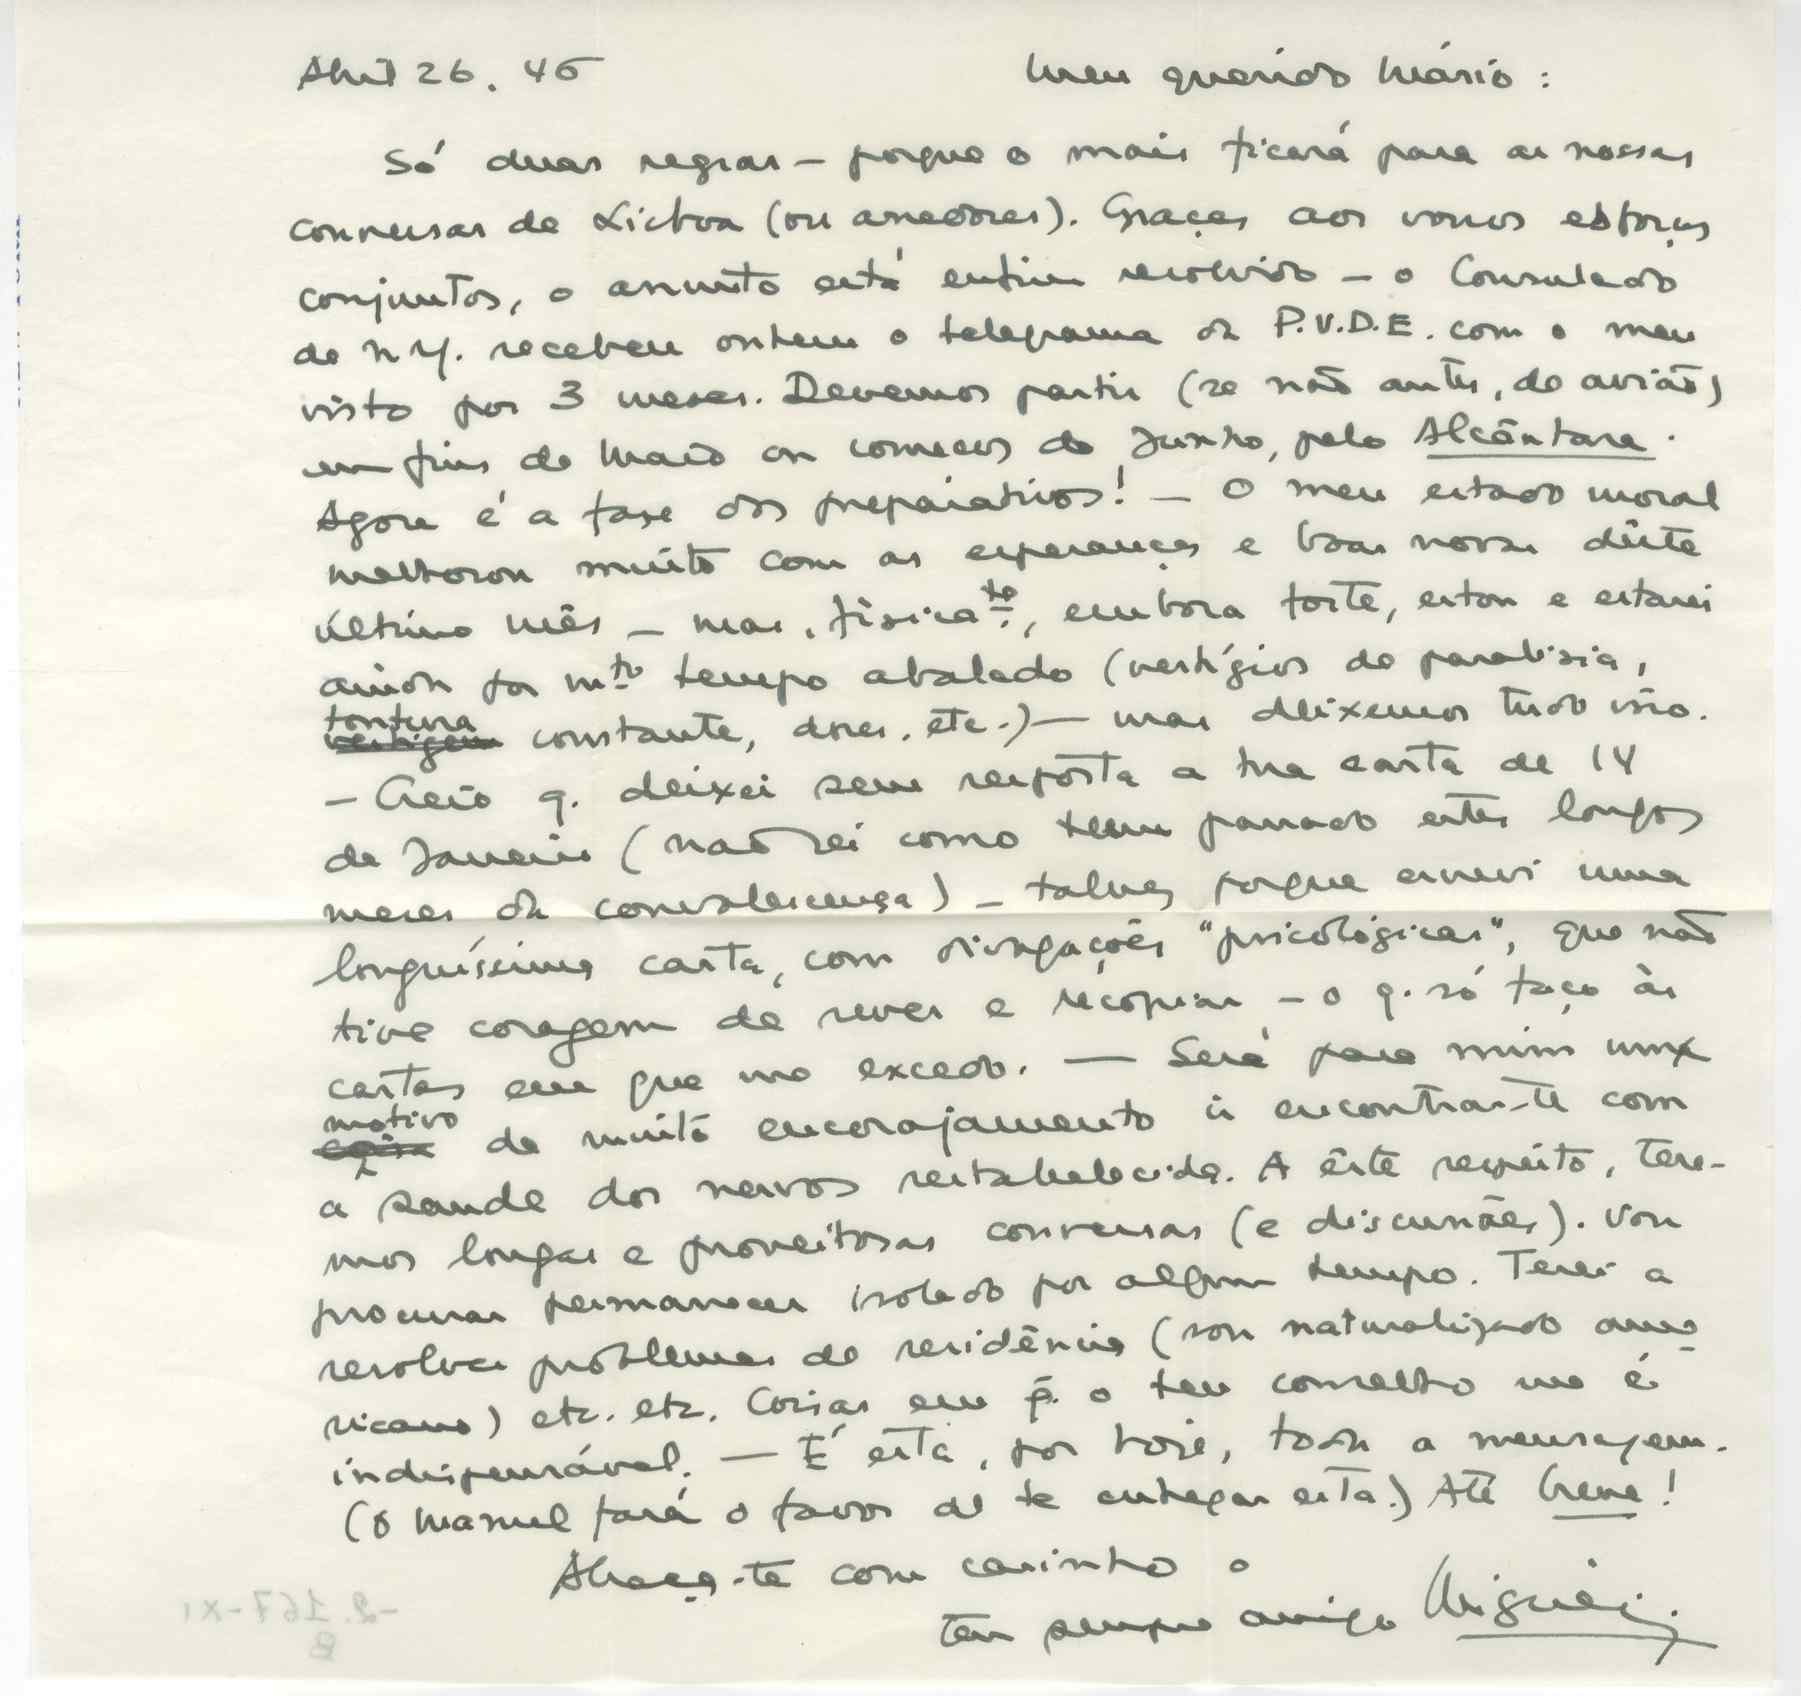 Abril 26. 46 Meu querido Mário:
Só duas regras – porque o mais ficará para as nossas
conversas de Lisboa (ou arredores). Graças aos vossos esforços
conjuntos, o assunto está enfim resolvido – o Consulado
de N Y. recebeu ontem o telegrama da P.V.D.E. com o meu
visto por 3 meses. Devemos partir (se não antes, de avião)
em fins de Maio ou começos de Junho, pelo Alcântara.
Agora é a fase dos preparativos! – O meu estado moral
melhorou muito com as esperanças e boas novas dêste
último mês – mas, fìsicate., embora forte, estou e estarei
ainda por mto tempo abalado (vestígios de paralisia,
tontura
vertigem constante, dores, etc.) – mas deixemos tudo isso.
– Creio q. deixei sem resposta a tua carta de 14
de Janeiro (não sei como tem passado estes longos
meses da convalescença) – talvez porque escrevi uma
longuíssima carta, com divagações "psicológicas", que não
tive coragem de rever e recopiar – o q. só faço às
cartas em que me excedo. – Será para mim um
motivo
de muito encorajamento ir encontrar-te com
a saude dos nervos restabelecida. A êste respeito, tere-
mos longas e proveitosas conversas (e discussões). Vou
procurar permanecer isolado por algum tempo. Terei a
resolver problemas de residência (sou naturalizado ame-
ricano) etc. etc. Coisas em q. o teu conselho me é
indispensável. – É esta, por hoje, toda a mensagem.
(O Manuel fará o favor de te entregar esta.) Até breve!
Abraça-te com carinho o
teu sempre amigo Miguéis.
-2.167-XI
B